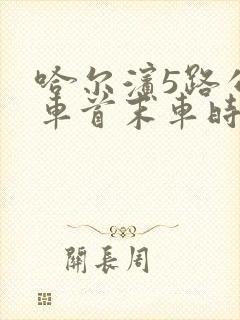 哈尔濱5路公
車首末車時
關長周